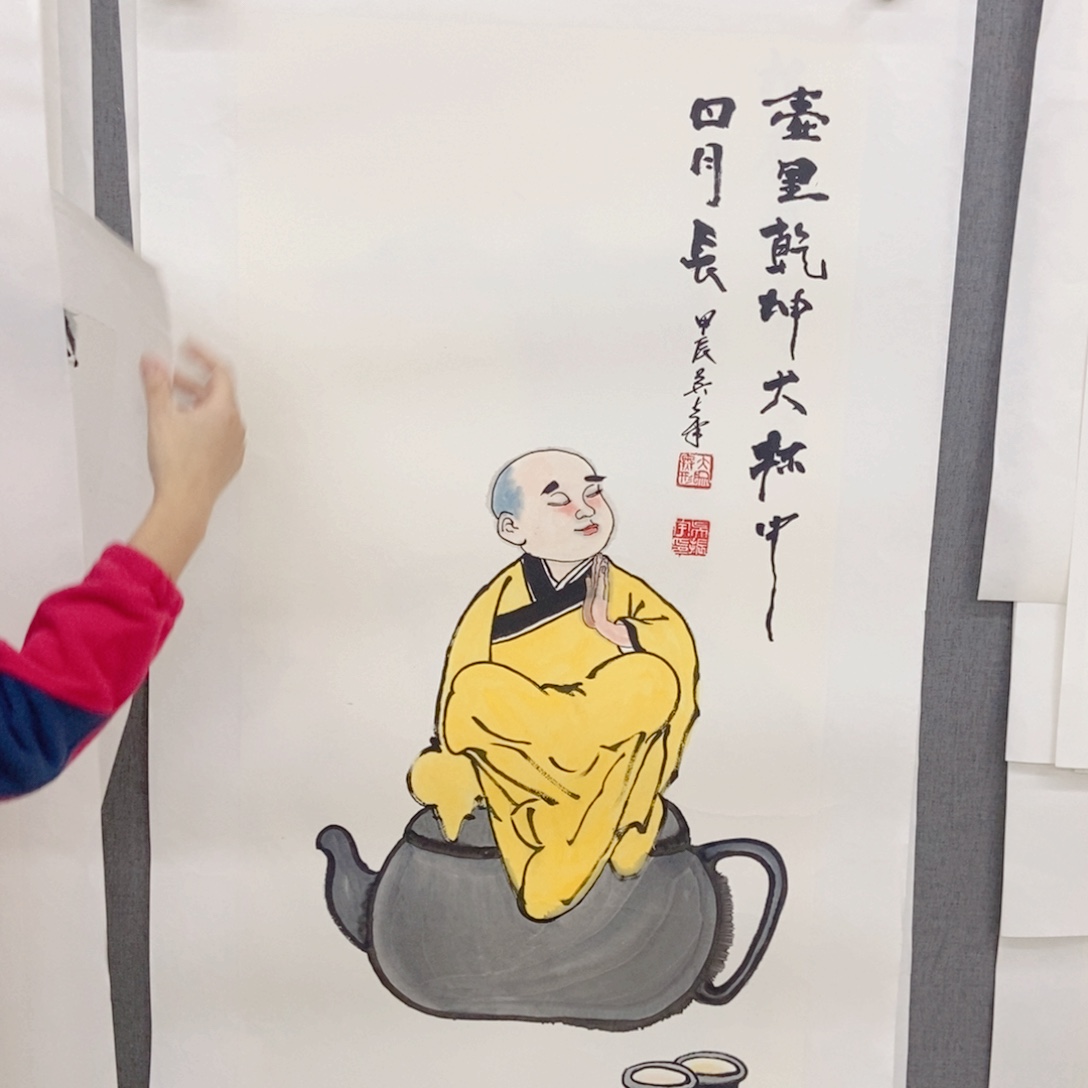 壺里乾坤大杯中
日月長
甲辰